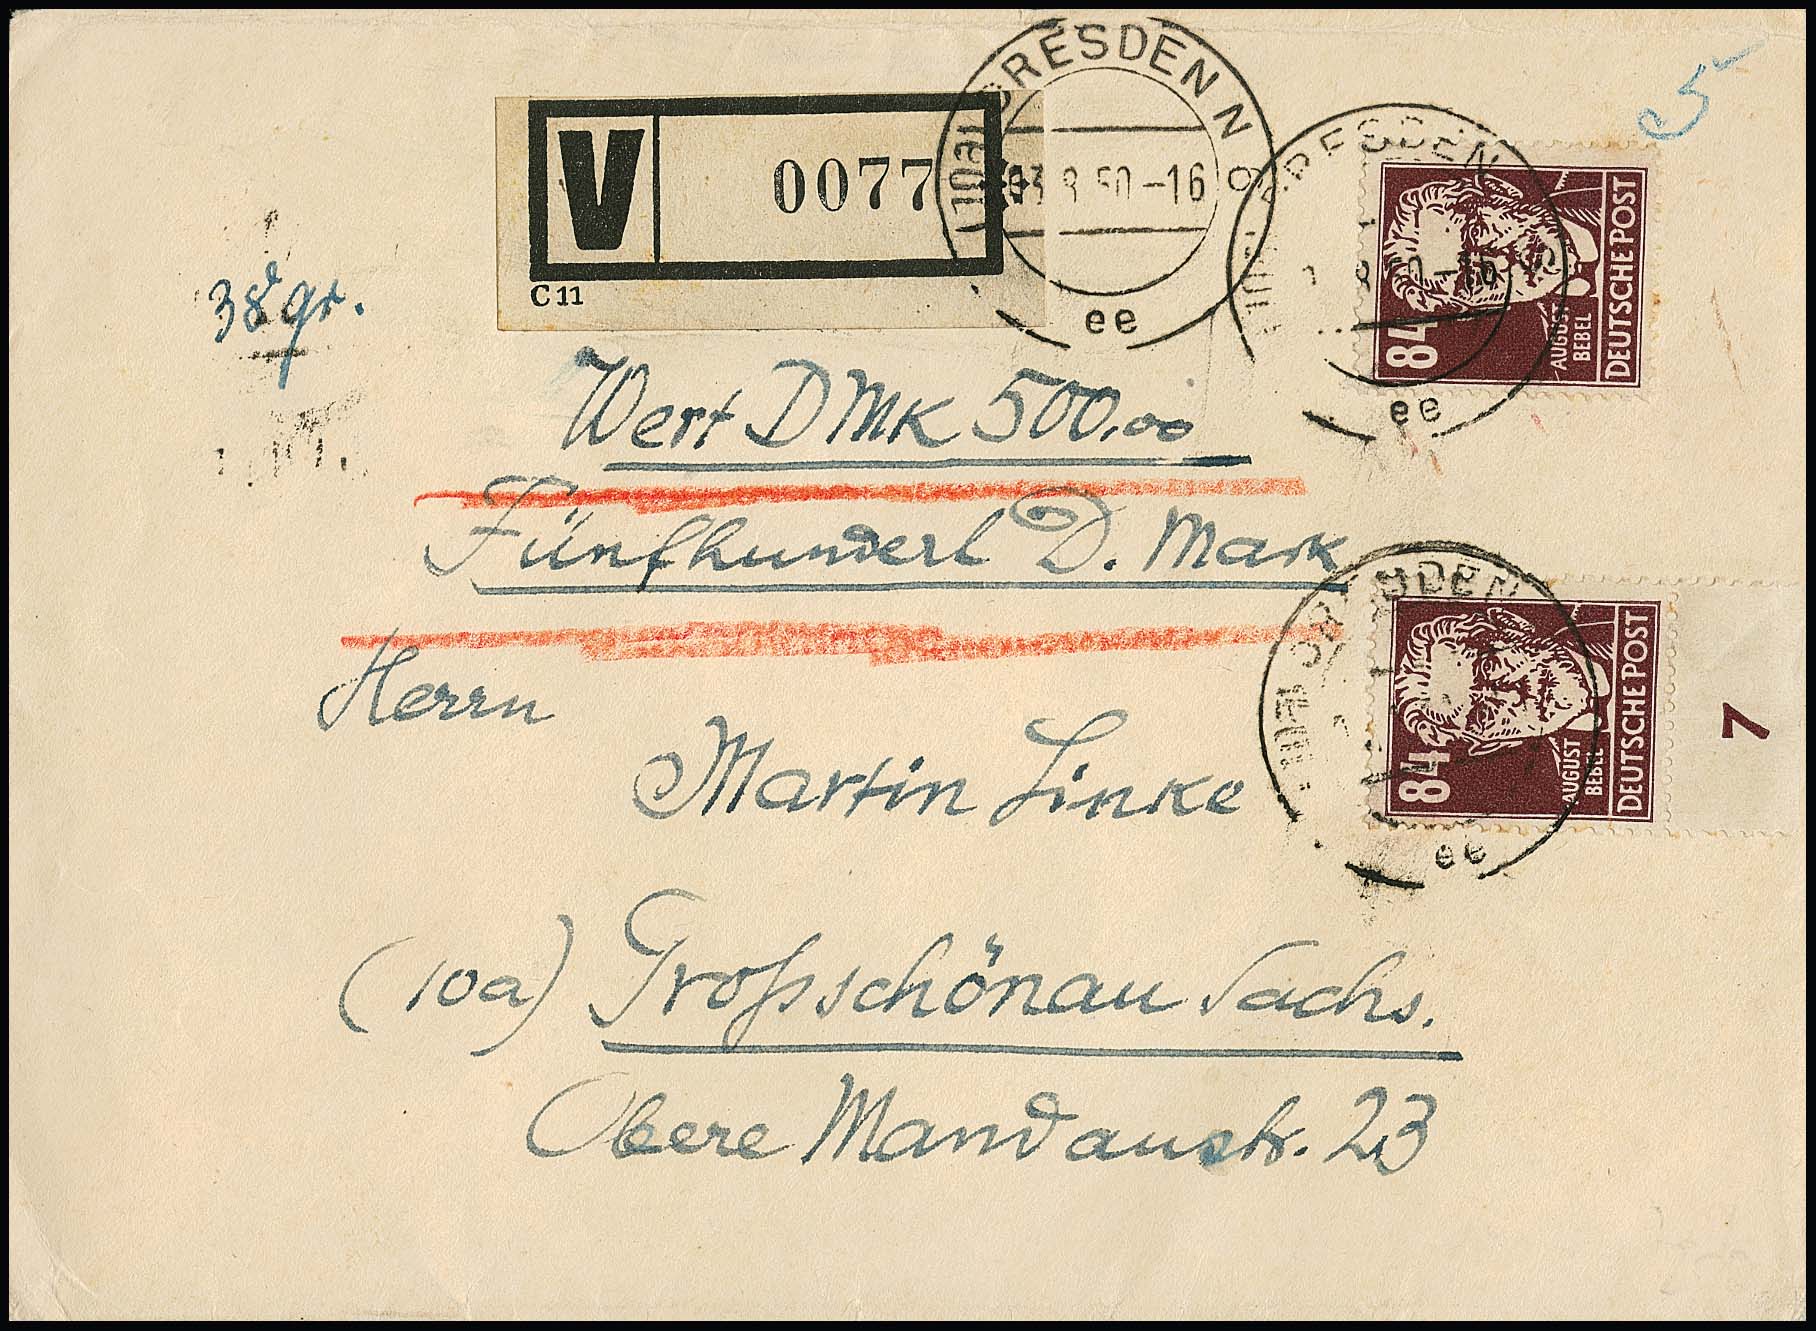 DRESDEN N
(10a)
V 0077
8.50-16
ee
C 11
5
DRESDEN
ee
84
AUGUST BEBEL
DEUTSCHE POST
38 gr.
Wert DMK 500,00
Fünfhundert D. Mark
Herrn
Martin Linke
DRESDEN
ee
84
AUGUST BEBEL
DEUTSCHE POST
7
(10a) Großschönau Sachs.
Obere Mandaustr. 23